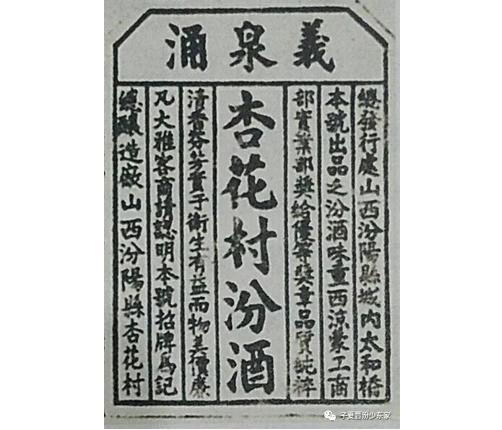 義泉涌
總發行處山西汾陽縣城内太和橋
本號出品之汾酒味重西涼蒙工商
部實業部獎給優等獎章品質純粹
杏花村汾酒
清香芬芳實于衛生有益而物美價廉
凡大雅客商請認明本號招牌為記
總釀造廠山西汾陽縣杏花村
子夏晋汾少东家